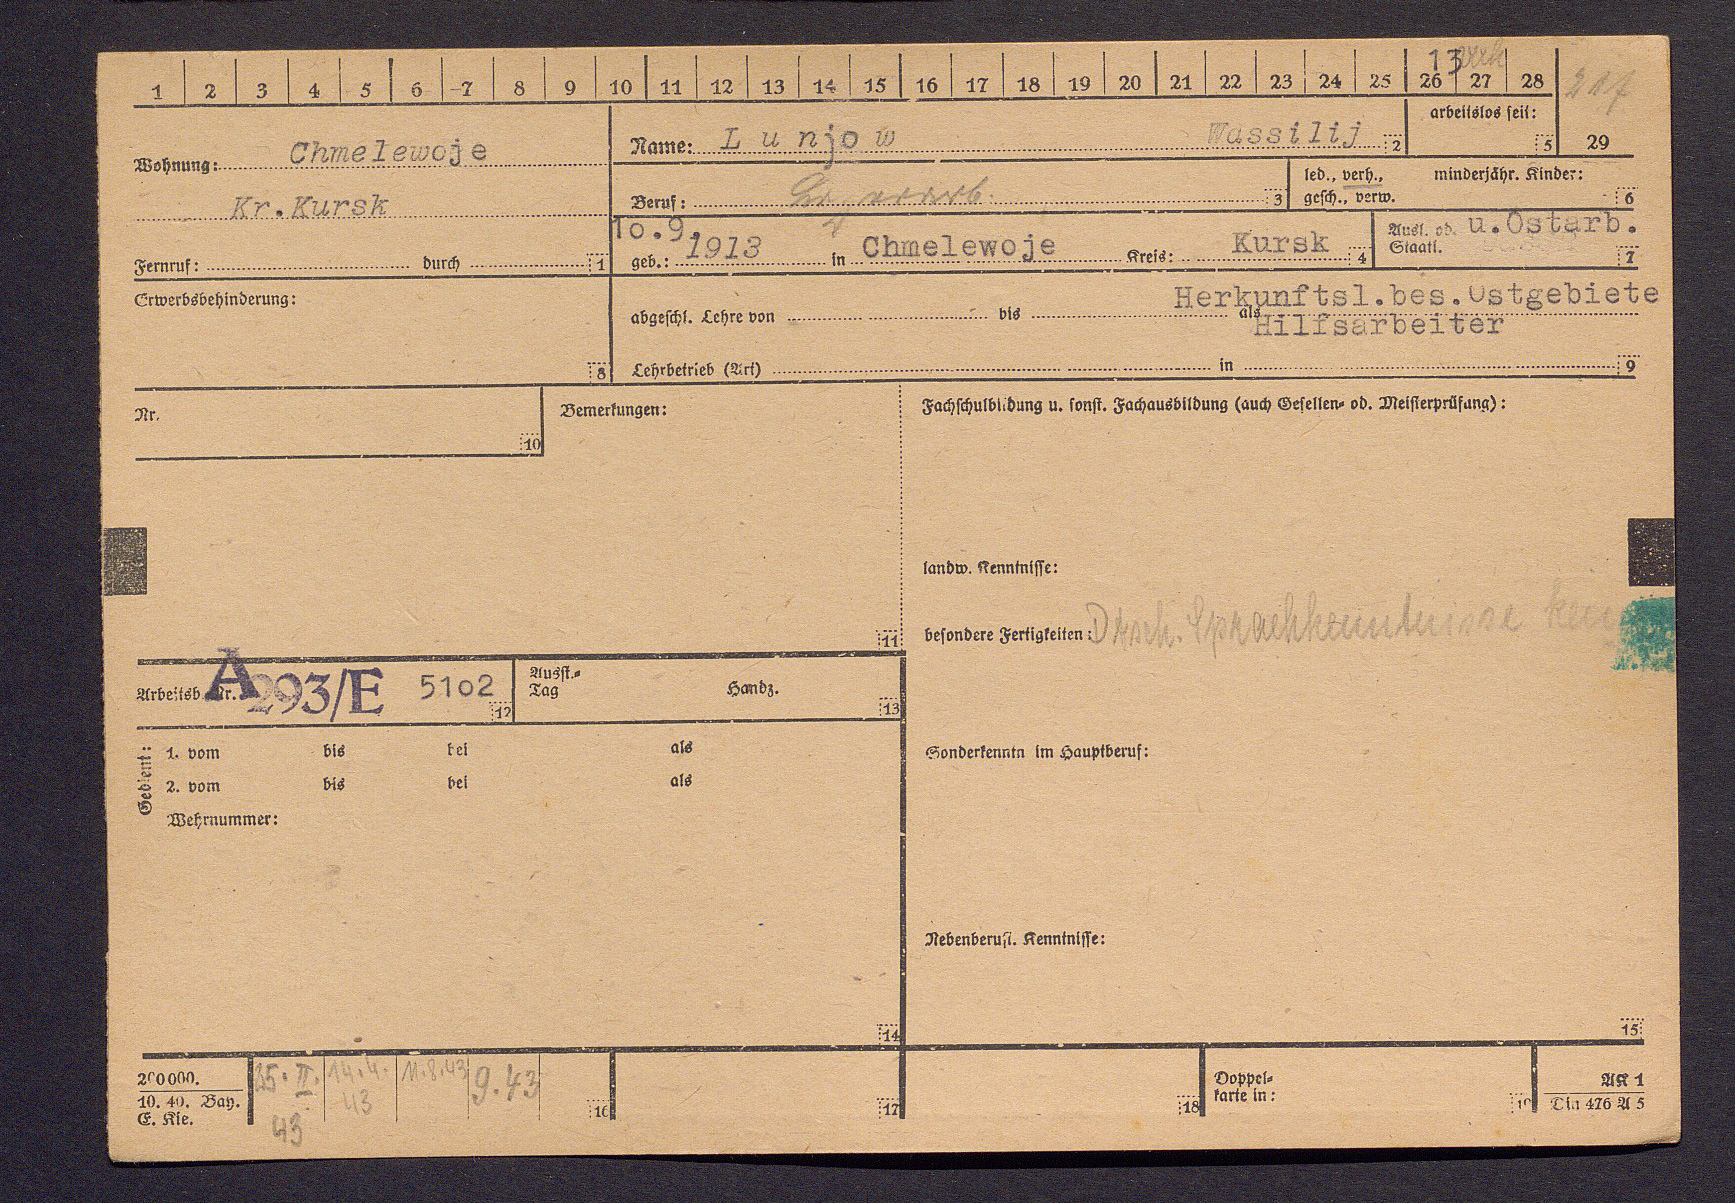 13
1 2 3 4 5 6 7 8 9 10 11 12 13 14 15 16 17 18 19 20 21 22 23 24 25 26 27 28
217
Wohnung: Chmelewoje
Kr.Kursk
Fernruf: durch 1
Name: Lunjow Wassilij 2
arbeitslos seit: 5
29
Beruf: 3
led., verh., minderjähr. Kinder:
gesch., verw. 6
10.9.
geb.: 1913 in Chmelewoje Kreis: Kursk 4
Ausl. od. u.Ostarb.
Staatl. 7
Erwerbsbehinderung: 8
Herkunftsl.bes.Ostgebiete
abgeschl. Lehre von bis als
Hilfsarbeiter
Lehrbetrieb (Art) in 9
Nr. 10
Bemerkungen: 11
Fachschulbildung u. sonst. Fachausbildung (auch Gesellen- od. Meisterprüfung):
landw. Kenntnisse:
besondere Fertigkeiten: Dtsch. Sprachkenntnisse
Arbeitsb. Nr. A 293/E 5102 12
Ausst.-
Tag Handz. 13
Gedient:
1. vom bis bei als
2. vom bis bei als
Wehrnummer:
14
Sonderkenntn im Hauptberuf:
Nebenberufl. Kenntnisse:
15
200000.
10. 40. Bay.
E. Kie.
25.II.
43
14.4.
43
11.8.43
9.43
16
17
18
Doppel-
karte in: 19
AK 1
Din 476 A 5